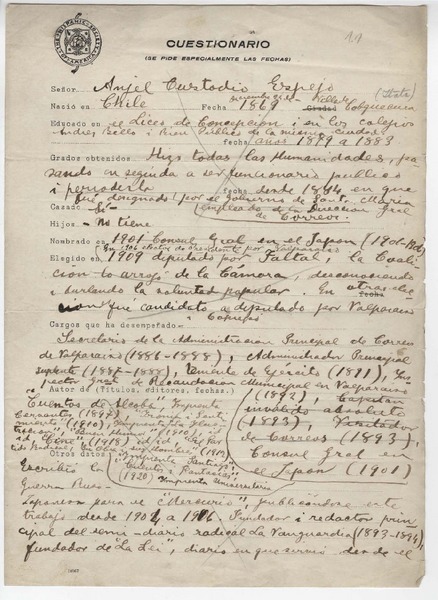 HISPANIC SOCIETY OF AMERICA
11
CUESTIONARIO
(SE PIDE ESPECIALMENTE LAS FECHAS)
Señor Anjel Custodio Espejo (Itata)
Nació en Chile Fecha 1869 Ciudad Cobquecura
Educado en el Liceo de Concepcion i en los colejios
Andres Bello i Bien Publico de la misma ciudad
fecha años 1879 a 1883
Grados obtenidos. Hizo todas las Humanidades, pa-
sando en seguida a ser funcionario publico
i periodista fecha desde 1884 en que
fué designado por el Gobierno de Santa Maria
Casado Si empleado de la Direccion Gral
de Correos.
Hijos. No tiene
Nombrado en 1901 Consul Gral en el Japon (1901-1902)
En 1906 por Valparaiso
Elegido en 1909 diputado por Taltal, la Coali-
cion lo arrojó de la Camara, desconociendo
i burlando la voluntad popular. En otras elec-
fecha
ciones fué candidato a diputado por Valparaiso
Cargos que ha desempeñado. i Copiapó
Secretario de la Administracion Principal de Correos
de Valparaiso (1886-1888), Administrador Principal
suplente (1887-1888), Teniente de Ejército (1891), Ins-
pector Gral de Recaudacion Municipal en Valparaiso
Autor de (Títulos, editores, fechas.) (1892), Capitan
"Cuentos de Alcoba" Imprenta invalido absoluto
Cervantes (1897) (1893), Visitador
miento (1910) de Correos (1893)
(1910) id id Consul Gral en
(1918) id id el Japon (1901)
(1919)
Otros datos Imprenta Santiago,
Cuentos i Fantasias
Escribió la (1920) Imprenta Universitaria
Guerra Ruso-
Japonesa para el "Mercurio", publicándose este
trabajo desde 1904 a 1906. Fundador i redactor prin-
cipal del semi-diario radical La Vanguardia (1893-1894),
fundador de La Lei, diario en que sirvió desde el